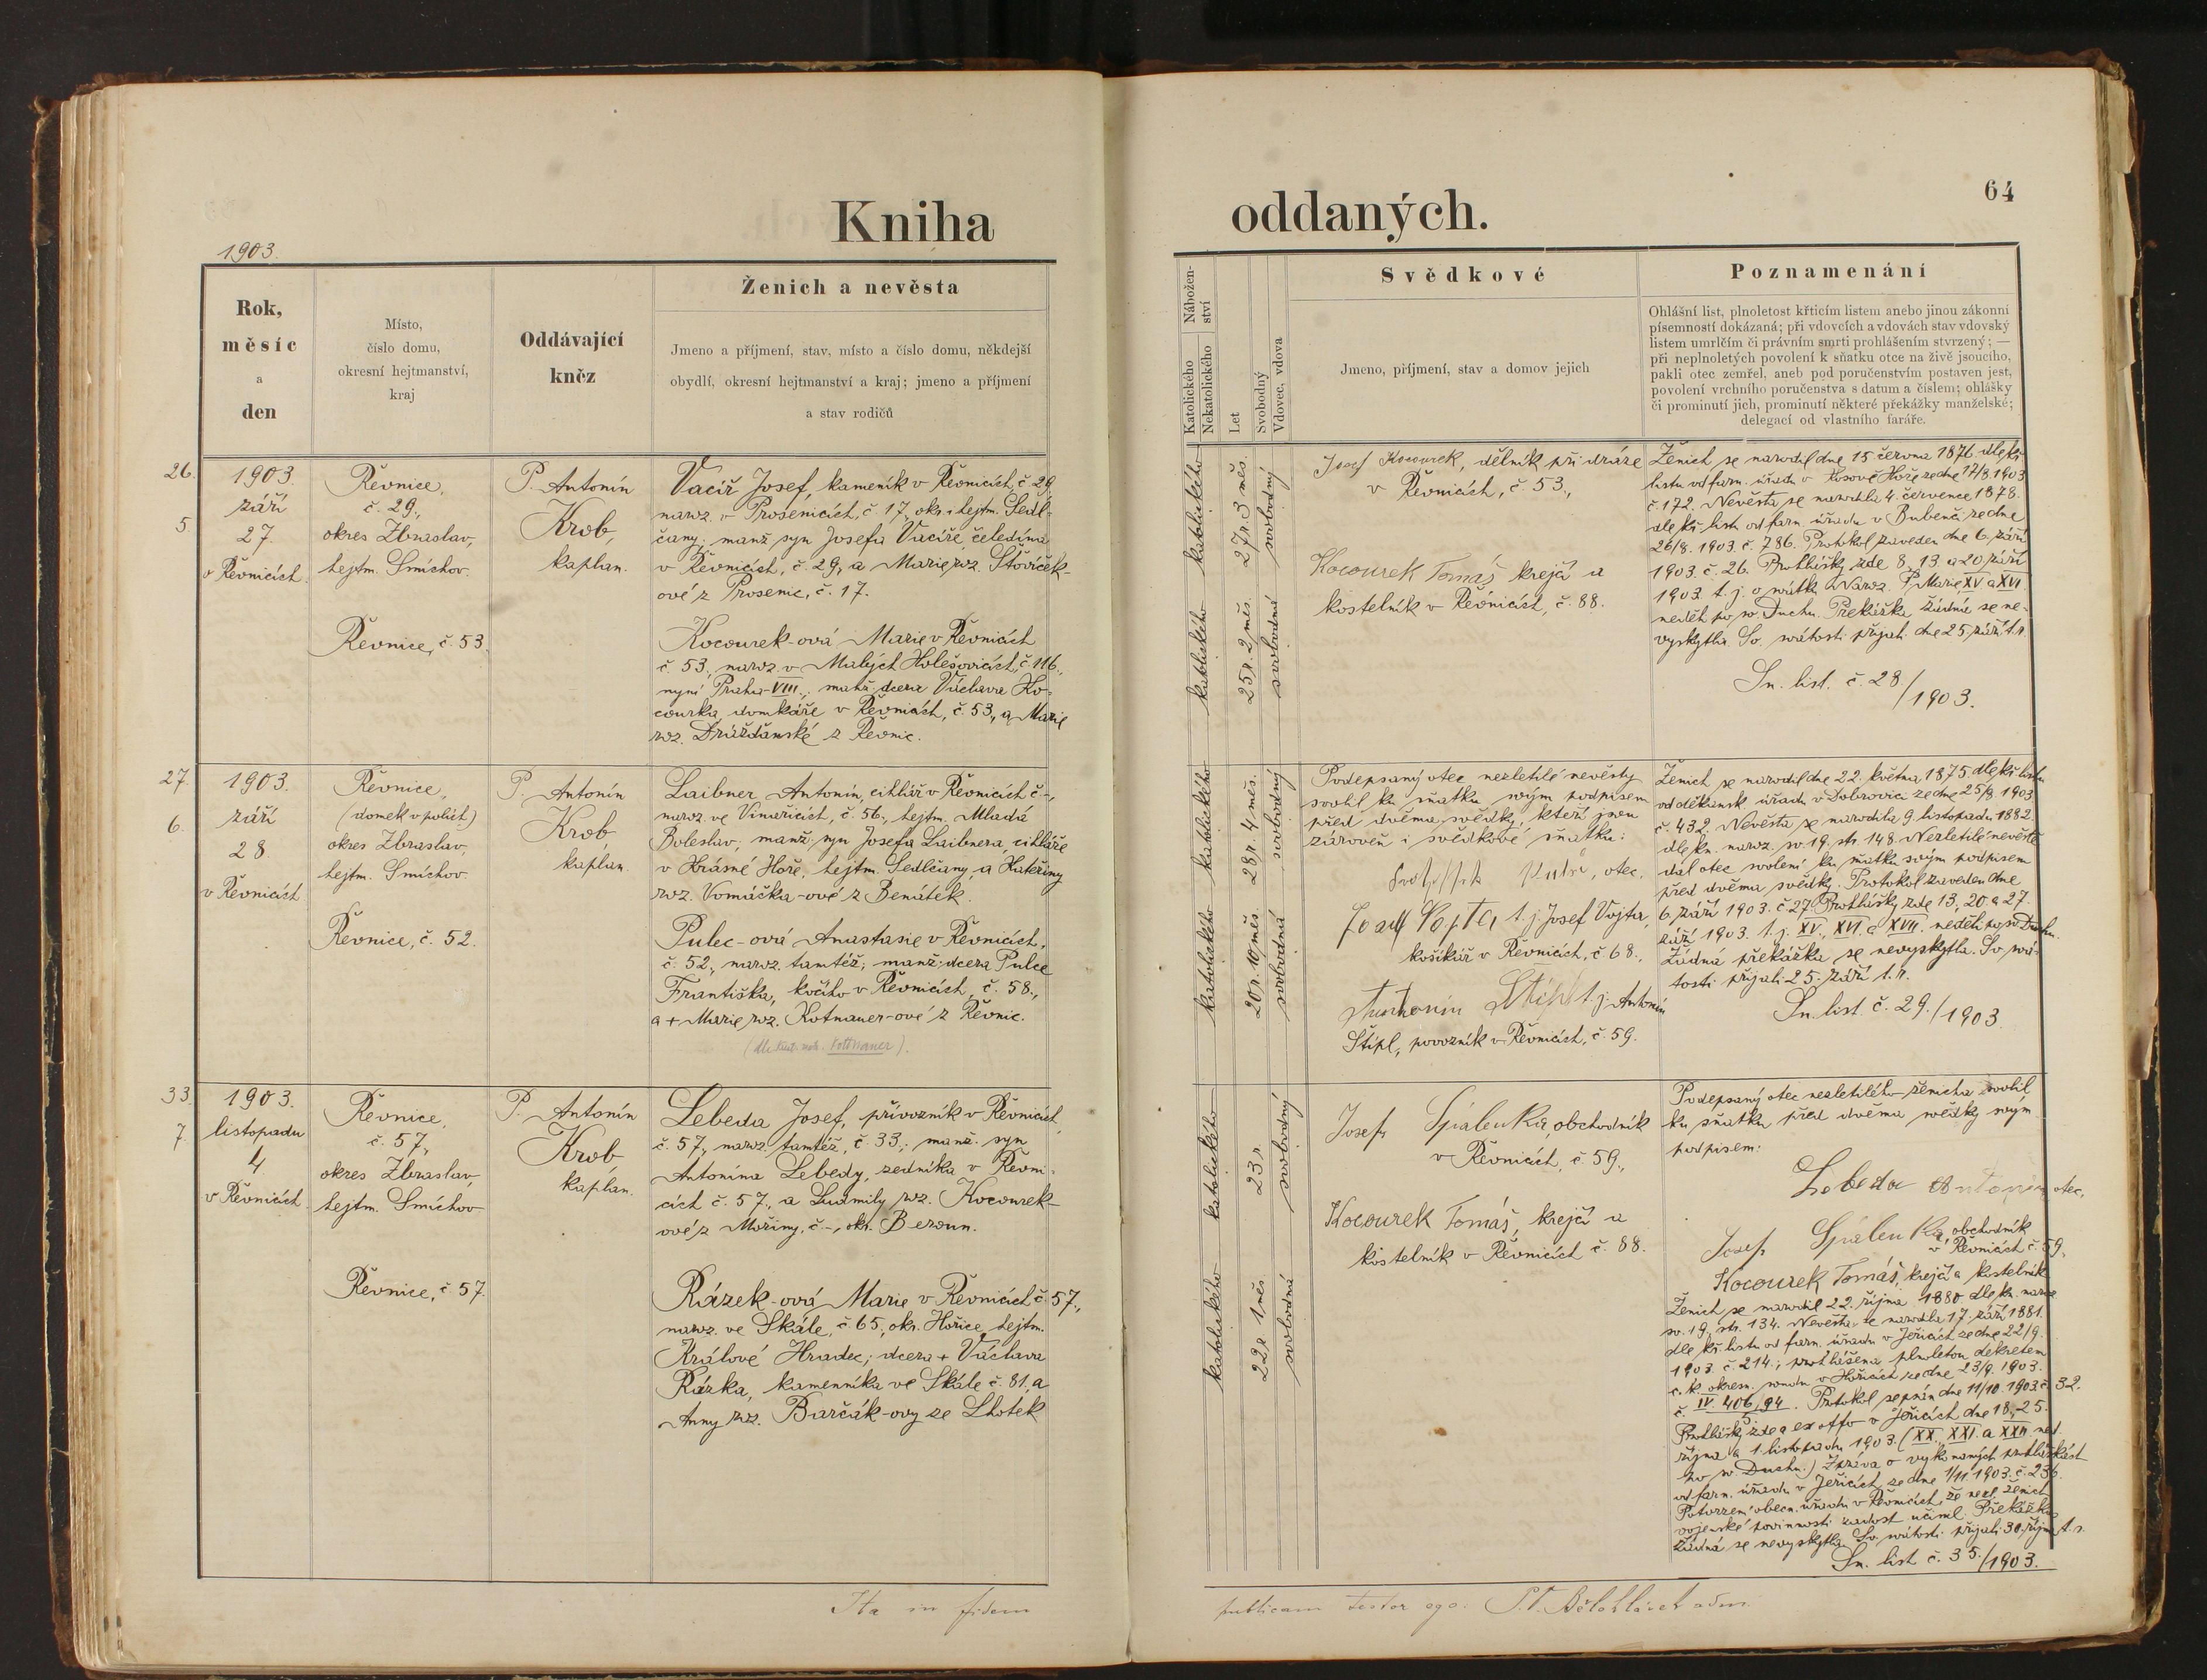 Kniha
1903.
Rok,
měsíc
a
den
Místo,
číslo domu,
okresní hejtmanství,
kraj
Oddávající
kněz
Ženich a nevěsta
Jmeno a příjmení, stav, místo a číslo domu, někdejší
obydlí, okresní hejtmanství a kraj; jmeno a příjmení
a stav rodičů
26.
5.
1903.
září
27.
v Řevnicích.
Řevnice,
č. 29.,
okres Zbraslav,
hejtm. Smíchov.
Řevnice, č. 53.
P. Antonín
Krob,
kaplan.
Vacíř Josef, kameník v Řevnicích, č. 29
naroz. v Prosenicích, č. 17, okr. a hejtm. Sedl-
čany; manž. syn Josefa Vacíře, čeledína
v Řevnicích, č. 29, a Marie, roz. Štovíček-
ové z Prosenic, č. 17.
Kocourek-ová Marie v Řevnicích
č. 53., naroz. v Malých Holešovicích, č. 116.,
nyní Praha-VIII.; manž. dcera Václava Ko-
courka, domkáře v Řevnicích, č. 53., a Marie
roz. Drážďanské z Řevnic.
27.
6.
1903.
září
28
v Řevnicích
Řevnice,
(domek v polích)
okres Zbraslav,
hejtm. Smíchov.
Řevnice, č. 52.
P. Antonín
Krob,
kaplan.
Laibner Antonín, cihlář v Řevnicích č -,
naroz. ve Vinařicích, č. 56., hejtm. Mladá
Boleslav, manž. syn Josefa Laibnera, cihláře
v Krásné Hoře, hejtm. Sedlčany, a Kateřiny
roz. Vomáčka-ové z Benátek.
Pulec-ová Anastasie v Řevnicích,
č. 52., naroz. tamtéž; manž. dcera Pulce
Františka, kočího v Řevnicích, č. 58.,
a + Marie roz. Kotnauer-ové z Řevnic.
33.
7.
1903.
listopadu
4.
v Řevnicích
Řevnice,
č. 57.,
okres Zbraslav,
hejtm. Smíchov
Řevnice, č. 57.
P. Antonín
Krob
kaplan.
Lebeda Josef, přívozník v Řevnicích,
č. 57., naroz. tamtéž, č. 33.; manž. syn
Antonína Lebedy, zedníka v Řevni-
cích č. 57., a Ludmily, roz. Kocourek-
ové z Mořiny, č. -, okr. Beroun.
Rázek-ová Marie v Řevnicích č. 57.,
naroz. ve Skále, č. 65., okr. Hořice, hejtm.
Králové Hradec; dcera + Václava
Rázka, kamenníka ve Skále č. 81, a
Anny roz. Barčák-ovy ze Lhotek
Ita in fidem
oddaných.
64
Nábožen-
ství
Katolického
Nekatolického
Let
Svobodný
Vdovec, vdova
Svědkové
Jmeno, příjmení, stav a domov jejich
Poznamenání
Ohlášní list, plnoletost křticím listem anebo jinou zákonní
písemností dokázaná; při vdovcích a vdovách stav vdovský
listem umrlčím či právním smrti prohlášením stvrzený; —
při neplnoletých povolení k sňatku otce na živě jsoucího,
pakli otec zemřel, aneb pod poručenstvím postaven jest,
povolení vrchního poručenstva s datum a číslem; ohlášky
či prominutí jich, prominutí některé překážky manželské;
delegací od vlastního faráře.
katolického
27 r. 3 měs.
svobodný
katolického
25 r. 2 měs.
svobodná
Josef Kocourek, dělník při dráze
v Řevnicích, č 53.,
Kocourek Tomáš krejčí a
kostelník v Řevnicích, č. 88.
Ženich se narodil dne 15. června 1876. dle kř.
listu od farn. úřadu v Kosově Hoře ze dne 12/8. 1903
č. 172. Nevěsta se narodila 4. července 1878.
dle kř. listu od farn. úřadu v Bubenči ze dne
26/8. 1903. č. 786. Protokol zaveden dne 6. září
1903. č. 26. Prohlášky zde 8., 13. a 20 září
1903. t. j. o svátku Naroz. P. Marie, XV a XVI
neděli po sv. Duchu. Překážka žádná se ne-
vyskytla. Sv. svátosti přijali dne 25. září t. r.
Sn. list. č. 28/1903.
katolického
28 r. 4 měs.
svobodný
katolického
20 r. 10 měs.
svobodná
Podepsaný otec nezletilé nevěsty
svolil ku sňatku svým podpisem
před dvěma svědky, kteří jsou
zároveň i svědkové sňatku:
otec.
t. j. Josef Vojta,
košíkář v Řevnicích, č. 68.,
Antonín Štípl t. j. Antonín
Štípl, povozník v Řevnicích, č. 59.
Ženich se narodil dne 22. května 1875. dle kř. listu
od děkansk. úřadu v Dobrovici ze dne 25/8. 1903.
č. 432. Nevěsta se narodila 9. listopadu 1882.
dle kn. naroz. sv. 19. str. 148. Nezletilé nevěstě
dal otec svolení ku sňatku svým podpisem
před dvěma svědky. Protokol zaveden dne
6. září 1903. č. 27. Prohlášky zde 13., 20. a 27.
září 1903. t. j. XV., XVI. a XVII. neděli po sv. Duchu.
Žádná překážka se nevyskytla. Sv. svá-
tosti přijali 25. září t. r.
Sn. list. č. 29./1903.
katolického
23 r.
svobodný
katolického
22 r. 1 měs
svobodná
Josef Špalenka, obchodník
v Řevnicích, č. 59.,
Kocourek Tomáš, krejčí a
kostelník v Řevnicích č. 88.
Podepsaný otec nezletilého ženicha svolil
ku sňatku před dvěma svědky svým
podpisem:
Lebeda Antonín otec.
Josef Špalenka, obchodník
v Řevnicích č. 59.
Kocourek Tomáš, krejčí a kostelník
Ženich se narodil 22. října 1880 dle kn. naroz
sv. 19., str. 134. Nevěsta se narodila 17. září 1881.
dle kř. listu od farn. úřadu v Jeřicích ze dne 22/9.
1903. č. 214.; prohlášena plnoletou dekretem
c. k. okresn. soudu v Hořicích ze dne 23/9. 1903.
č. IV. 406/94. Protokol sepsán dne 11/10. 1903. č. 32.
5
Prohlášky zde a ex offo v Jeřicích dne 18., 25.
října a 1. listopadu 1903. (XX., XXI. a XXII. ned.
po sv. Duchu.) Zpráva o vykonaných prohláškách
od farn. úřadu v Jeřicích ze dne 1/11. 1903. č. 236.
Potvrzení obecn. úřadu v Řevnicích, že nezl. ženich
vojenské povinnosti zadost učinil. Překážka
žádná se nevyskytla. Sv. svátosti přijali 30. října t. r.
Sn. list č. 35./1903.
publicam testor ego: P. T. Bělohlávek adm.